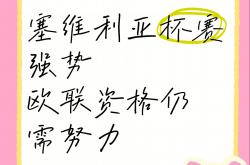 塞维利亚杯赛
强势
欧联资格仍
需努力